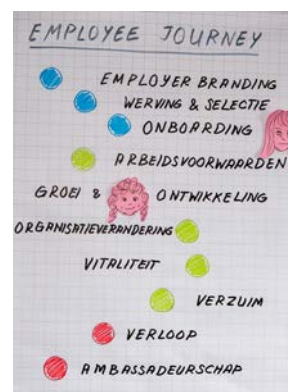 EMPLOYEE JOURNEY
EMPLOYER BRANDING
WERVING & SELECTIE
ONBOARDING
ARBEIDSVOORWAARDEN
GROEI & ONTWIKKELING
ORGANISATIEVERANDERING
VITALITEIT
VERZUIM
VERLOOP
AMBASSADEURSCHAP